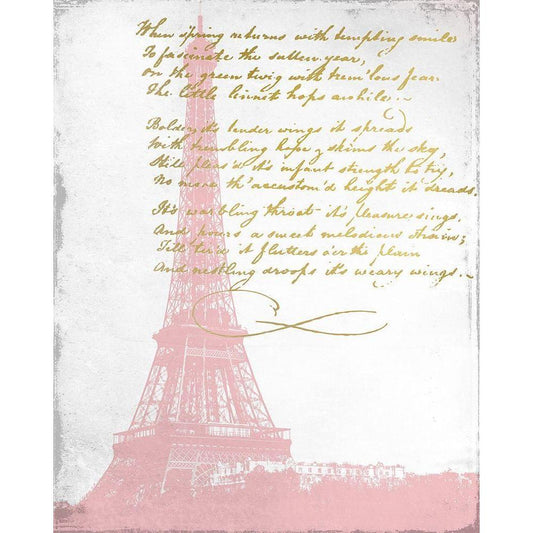 When spring returns with tempting smile
To fascinate the sullen year,
On the green twig with trem'lous fear
The little linnet hops awhile.
Bolder, it's tender wings it spreads
With trembling hope, skims the sky,
Still pleas'd it's infant strength to try,
No more th' accustom'd height it dreads.
It's warbling throat it's pleasure sings,
And pours a sweet melodious strain;
Till tir'd it flutters o'er the plain
And nestling droops it's weary wings.